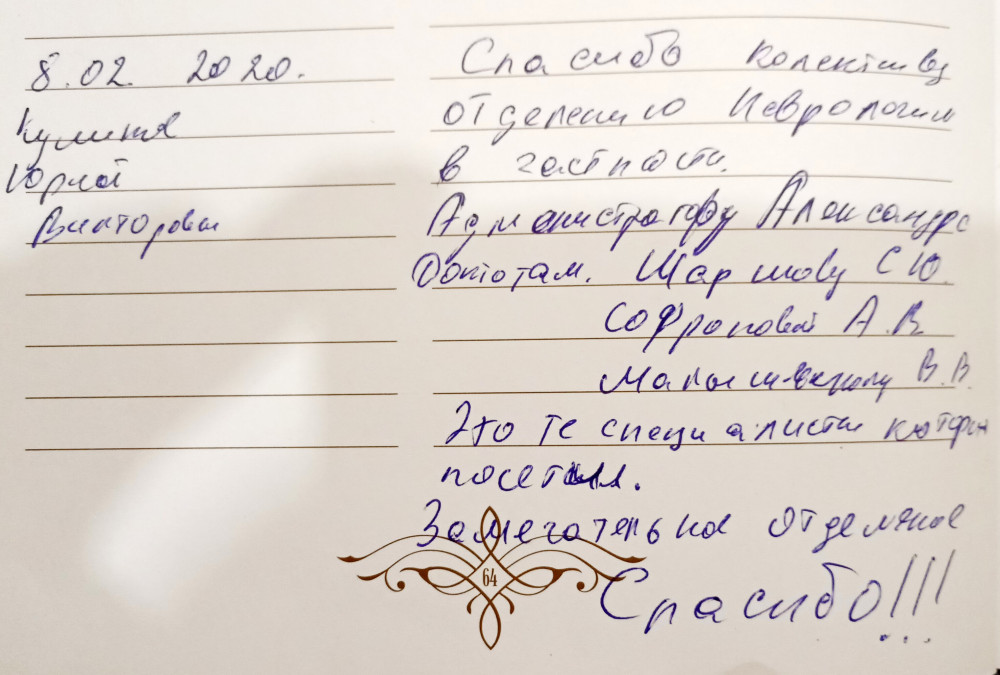 8.02 2020.
Юрий
Викторович
Спасибо колективу
отделению Неврологии
в частности.
Администратору Александре
Доктотам. Шаршову С Ю.
Софроновой А.В
В.В.
Это те специалисты которых
посетил.
Замечательное отделение
64
Спасибо!!!